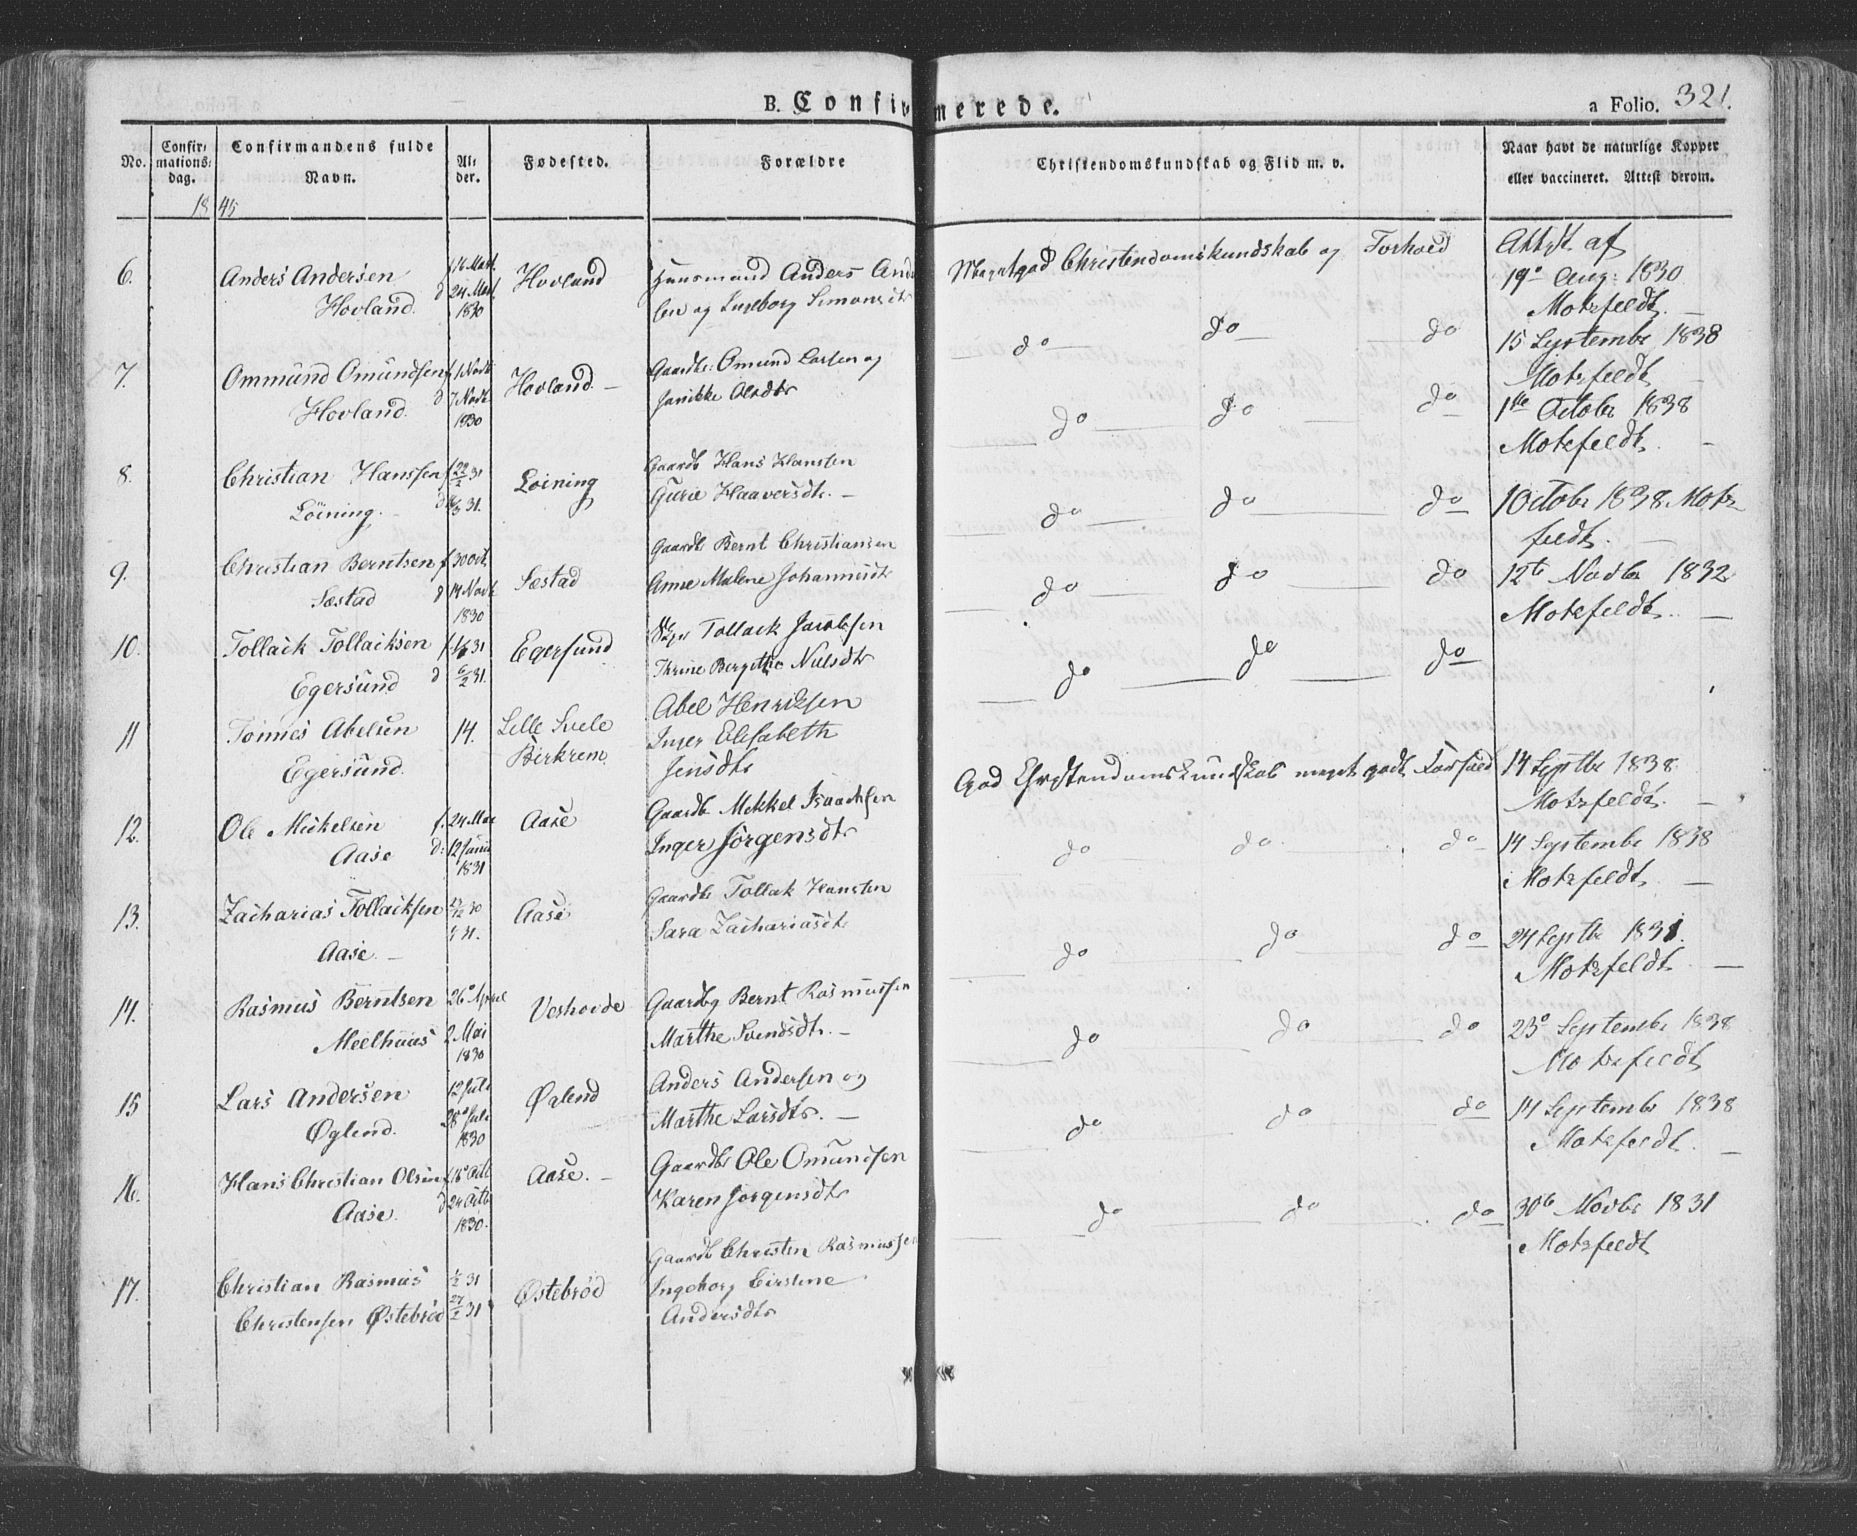 B. Confirmerede.
a Folio. 321.
No.
Confir-
mations-
dag.
Confirmandens fulde
Navn.
Al-
der.
Fødested.
Forældre
Christendomskundskab og Flid m. v.
Naar havt de naturlige Kopper
eller vaccineret. Attest derom.
1845
6. Anders Andersen
Hovland
24 Mart.
1830
Hovland
Huusmand Anders Ander
sen og Ingeborg Simonsdtr
Megetgod Christendomskundskab og Forhold
Attest af
19de Aug: 1830
Motzfeldt.
7. Ommund Omundsen
Hovland.
f 1 Novb
d 7 Novb.
1830
Hovland
Gaardbr: Omund Larsen og
Janikke Olsdtr
do do do
15 Septembr 1838
Motzfeldt
8. Christian Hanssen
Löining.
f 22/2 31
31.
Löining
Gaardb Hans Hanssen
Gurie Haaversdtr.
do do do
1ste Octobr 1838
Motzfeldt.
9. Christian Berntsen
Sæstad
f. 30 Oct.
d 14 Novb.
1830
Sæstad
Gaardb Bernt Christiansen
Anne Malene Johannisdtr
do do do
1 Octobr 1838. Motz
feldt.
10. Tollack Tollacksen
Egersund
31
d 6/2 31.
Egersund
Tollack Jacobsen
Thrine Bergithe Nielsdtr
do do do
12te Novbr 1832
Motzfeldt.
11 Tönnes Abelsen
Egersund.
14.
Lille Svele
Birkrem
Abel Henriksen
Inger Elisabeth
Jensdtr
do do do
12. Ole Mickelsen
Aase
f. 24 Mai
d: 12 Junii
1831
Aase
Gaardb Mekkel Isaachsen
Inger Jörgensdtr
God Christendomskundskab meget godt Forhold
14 Septbr 1838
Motzfeldt.
13. Zacharias Tollacksen
Aase.
27/12 30
31.
Aase
Gaardb Tollak Hansten
Sara Zachariasdtr
do do do
14 Septembr 1838
Motzfeldt.
14. Rasmus Berntsen
Meelhuus
26de April
2 Mai
1830
Veshovde
Gaardbg Bernt Rasmussen
Marthe Svendsdtr.
do do do
24 Septbr 1831.
Motzfeldt.
15 Lars Andersen
Øglend.
12 Juli
28de Juli
1830
Øglend
Anders Andersen og
Marthe Larsdtr.
do do do
23de Septembr 1838
Motzfeldt
16. Hans Christian Olsen
Aase.
f 16de Octb
d 24 Octb
1830.
Aase.
Gaardbr Ole Omundsen
Karen Jorgensdtr
do do do
14 Septembr 1838
Motzfeldt.
17. Christian Rasmus
Christensen Østebröd
1/2 31
27/2 31
Østebröd
Gaardb Christen Rasmussen
Ingeborg Cirstine
Andersdtr
do do do
30te Novbr 1831
Motzfeldt